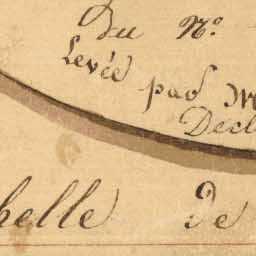 Du N.º
Levée
par
Decl
helle de